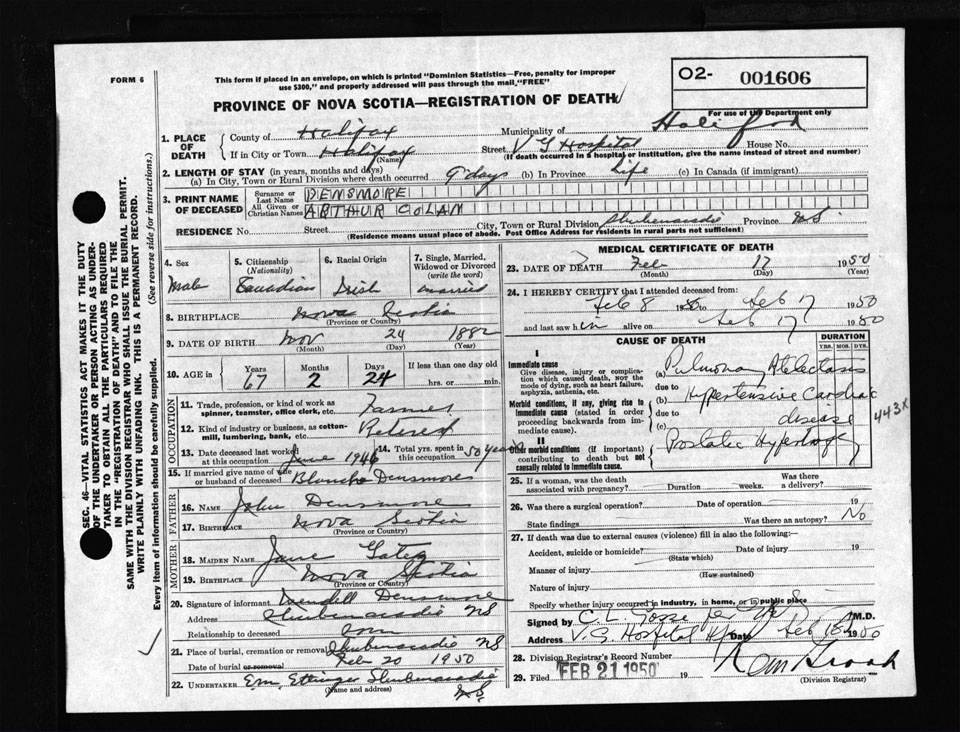 FORM 6
This form if placed in an envelope, on which is printed "Dominion Statistics—Free, penalty for improper
use $300," and properly addressed will pass through the mail, "FREE"
O2- 001606
For use of the Department only
PROVINCE OF NOVA SCOTIA—REGISTRATION OF DEATH
1. PLACE OF DEATH
County of Halifax
Municipality of
If in City or Town Halifax (Name)
Street V G Hospital House No.
(If death occurred in a hospital or institution, give the name instead of street and number)
2. LENGTH OF STAY (in years, months and days)
(a) In City, Town or Rural Division where death occurred 9 days (b) In Province Life (c) In Canada (if immigrant)
3. PRINT NAME OF DECEASED
Surname or Last Name DENSMORE
All Given or Christian Names ARTHUR COLAM
RESIDENCE No. Street City, Town or Rural Division Shubenacadie Province N.S.
(Residence means usual place of abode. Post Office Address for residents in rural parts not sufficient)
4. Sex
Male
5. Citizenship (Nationality)
Canadian
6. Racial Origin
Irish
7. Single, Married, Widowed or Divorced (write the word)
married
8. BIRTHPLACE Nova Scotia
(Province or Country)
9. DATE OF BIRTH Nov 24 1882
(Month) (Day) (Year)
10. AGE in
Years Months Days If less than one day old
67 2 24 hrs. or min.
OCCUPATION
11. Trade, profession, or kind of work as spinner, teamster, office clerk, etc. Farmer
12. Kind of industry or business, as cotton-mill, lumbering, bank, etc. Retired
13. Date deceased last worked at this occupation June 1946
14. Total yrs. spent in this occupation 50 years
15. If married give name of wife or husband of deceased Blanche Densmore
FATHER
16. Name John Densmore
17. Birthplace Nova Scotia
(Province or Country)
MOTHER
18. MAIDEN NAME Jane
19. BIRTHPLACE Nova Scotia
(Province or Country)
20. Signature of informant Wendell Densmore
Address Shubenacadie NS
Relationship to deceased son
21. Place of burial, cremation or removal Shubenacadie NS
Date of burial or removal Feb 20 1950
22. UNDERTAKER E.M. Ettinger Shubenacadie
(Name and address) N.S.
MEDICAL CERTIFICATE OF DEATH
23. DATE OF DEATH Feb 17 1950
(Month) (Day) (Year)
24. I HEREBY CERTIFY that I attended deceased from:
Feb 8 1950 to Feb 17 1950
and last saw him alive on Feb 17 1950
CAUSE OF DEATH
DURATION
YRS. MOS. DYS.
I
Immediate cause
Give disease, injury or complication which caused death, not the mode of dying, such as heart failure, asphyxia, asthenia, etc.
(a) Pulmonary Atelectasis
due to
Morbid conditions, if any, giving rise to immediate cause (stated in order proceeding backwards from immediate cause).
(b) Hypertensive Cardiac disease
443X
due to
(c)
II
Other morbid conditions (if important) contributing to death but not causally related to immediate cause.
Prostatic Hypertrophy
25. If a woman, was the death associated with pregnancy? Duration weeks. Was there a delivery?
26. Was there a surgical operation? Date of operation 19
State findings Was there an autopsy? No
27. If death was due to external causes (violence) fill in also the following:—
Accident, suicide or homicide? Date of injury 19
(State which)
Manner of injury
(How sustained)
Nature of injury
Specify whether injury occurred in industry, in home, or in public place
Signed by C. L. Gosse M.D.
Address V. G. Hospital Hfx Date Feb 18 1950
28. Division Registrar's Record Number
29. Filed FEB 21 1950 19
(Division Registrar)
SEC. 46—VITAL STATISTICS ACT MAKES IT THE DUTY
OF THE UNDERTAKER OR PERSON ACTING AS UNDERTAKER TO OBTAIN ALL THE PARTICULARS REQUIRED
IN THE "REGISTRATION OF DEATH" AND TO FILE THE
SAME WITH THE DIVISION REGISTRAR WHO SHALL ISSUE THE BURIAL PERMIT.
WRITE PLAINLY WITH UNFADING INK. THIS IS A PERMANENT RECORD.
Every item of information should be carefully supplied. (See reverse side for instructions.)